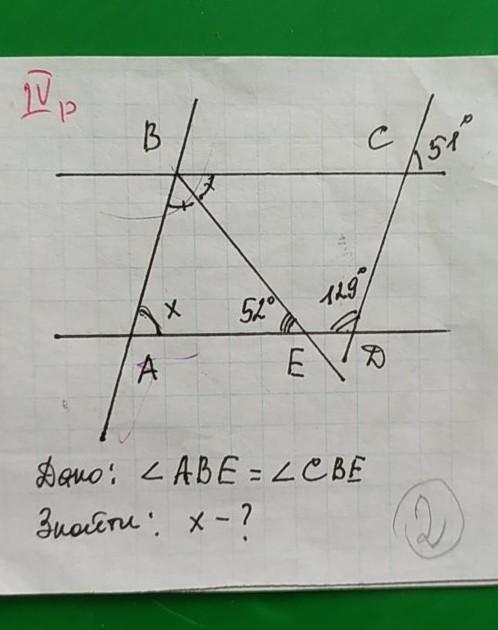 IV р
B
C
51°
x
52°
129°
A
E
D
Дано: ∠ABE = ∠CBE
Знайти: x - ?
2